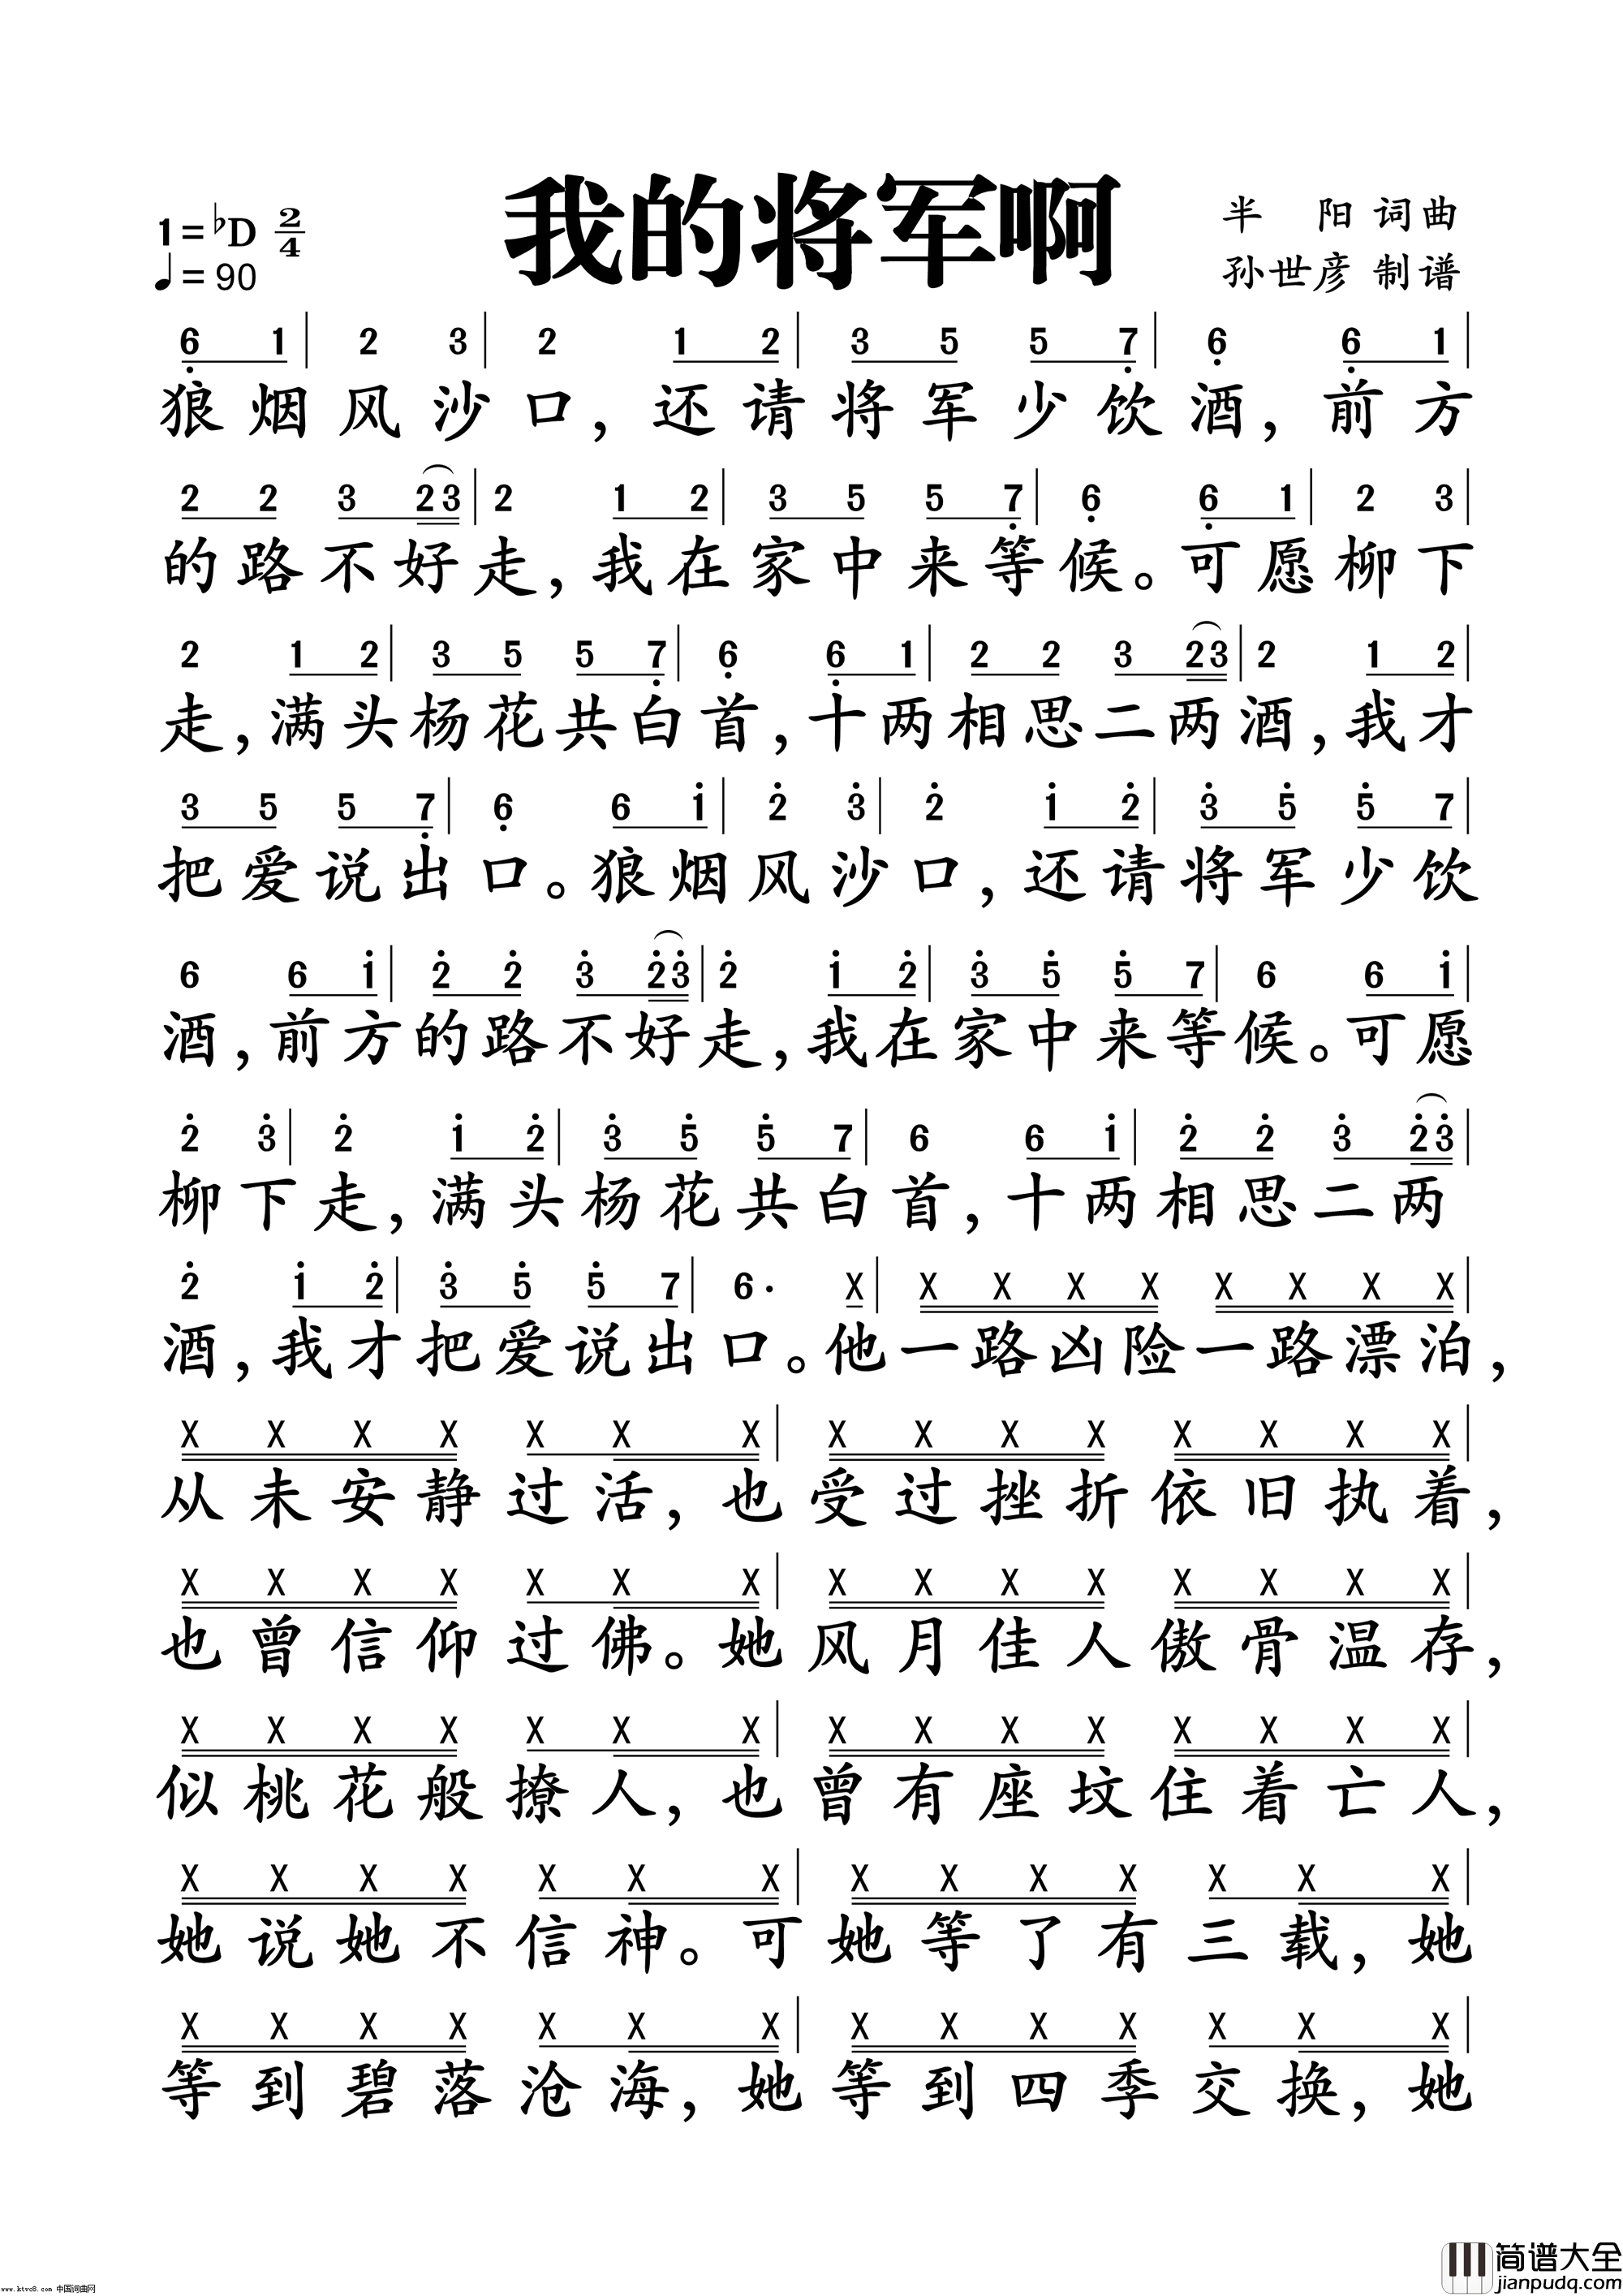 我的将军啊
1=♭D 2/4
♩=90
半 阳 词曲
孙世彦 制谱
6 1 | 2 3 | 2 1 2 | 3 5 5 7 | 6 6 1 |
狼烟风沙口，还请将军少饮酒，前方
2 2 3 2 3 | 2 1 2 | 3 5 5 7 | 6 6 1 | 2 3 |
的路不好走，我在家中来等候。可愿柳下
2 1 2 | 3 5 5 7 | 6 6 1 | 2 2 3 2 3 | 2 1 2 |
走，满头杨花共白首，十两相思二两酒，我才
3 5 5 7 | 6 6 1 | 2 3 | 2 1 2 | 3 5 5 7 |
把爱说出口。狼烟风沙口，还请将军少饮
6 6 1 | 2 2 3 2 3 | 2 1 2 | 3 5 5 7 | 6 6 1 |
酒，前方的路不好走，我在家中来等候。可愿
2 3 | 2 1 2 | 3 5 5 7 | 6 6 1 | 2 2 3 2 3 |
柳下走，满头杨花共白首，十两相思二两
2 1 2 | 3 5 5 7 | 6· X | X X X X X X X X |
酒，我才把爱说出口。他一路凶险一路漂泊，
X X X X X X X | X X X X X X X X |
从未安静过活，也受过挫折依旧执着，
X X X X X X X | X X X X X X X X |
也曾信仰过佛。她风月佳人傲骨温存，
X X X X X X X | X X X X X X X X |
似桃花般撩人，也曾有座坟住着亡人，
X X X X X X X | X X X X X X X |
她说她不信神。可她等了有三载，她
X X X X X X X | X X X X X X X |
等到碧落沧海，她等到四季交换，她
www.ktvc8.com 中国词曲网
简谱大全
jianpudq.com